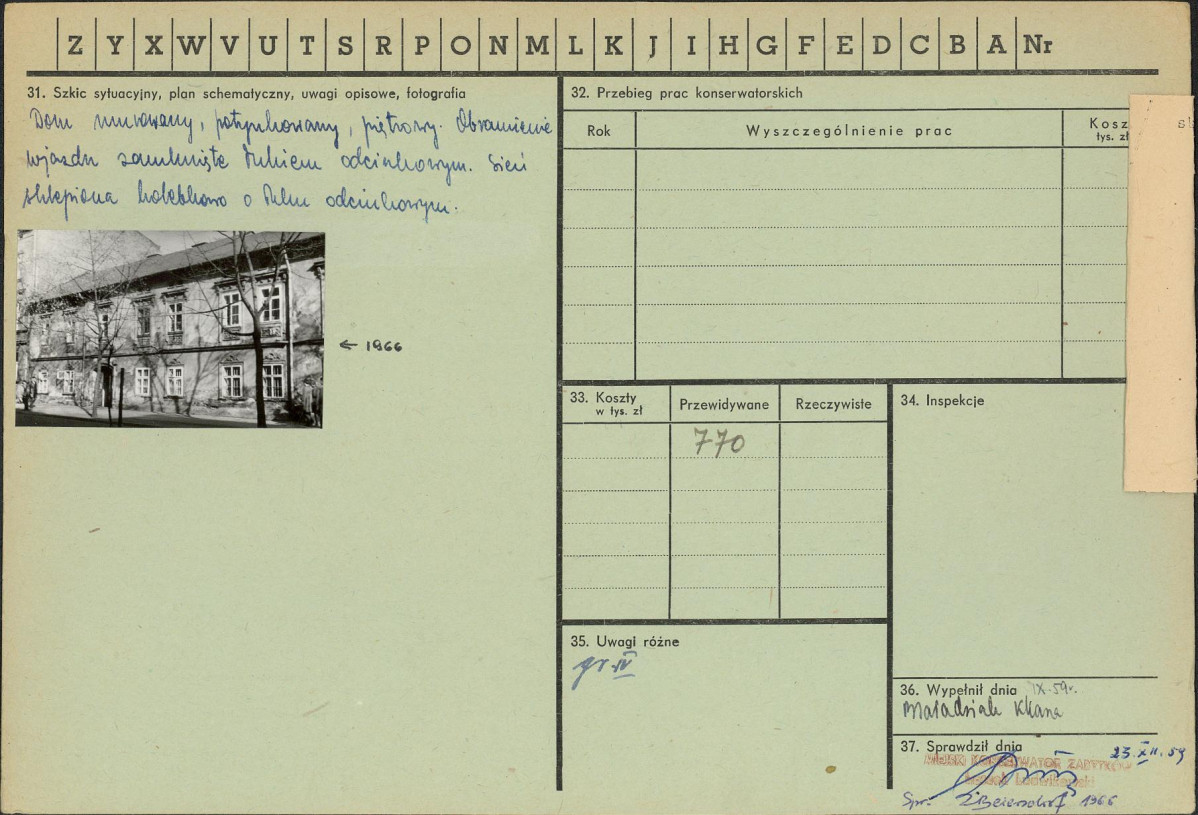 Z Y X W V U T S R P O N M L K J I H G F E D C B A Nr
31. Szkic sytuacyjny, plan schematyczny, uwagi opisowe, fotografia
Dom murowany, potynkowany, piętrowy. Obramienie
wjazdu zamknięte łukiem odcinkowym. Sień
sklepiona kolebkowo o łuku odcinkowym.
← 1966
32. Przebieg prac konserwatorskich
Rok Wyszczególnienie prac Kosz
tys. zł
33. Koszty
w tys. zł
Przewidywane Rzeczywiste
770
34. Inspekcje
35. Uwagi różne
gr. IV
36. Wypełnił dnia IX-59r.
37. Sprawdził dnia 23.XII.59
MIEJSKI KONSERWATOR ZABYTKÓW
Spr. 1966